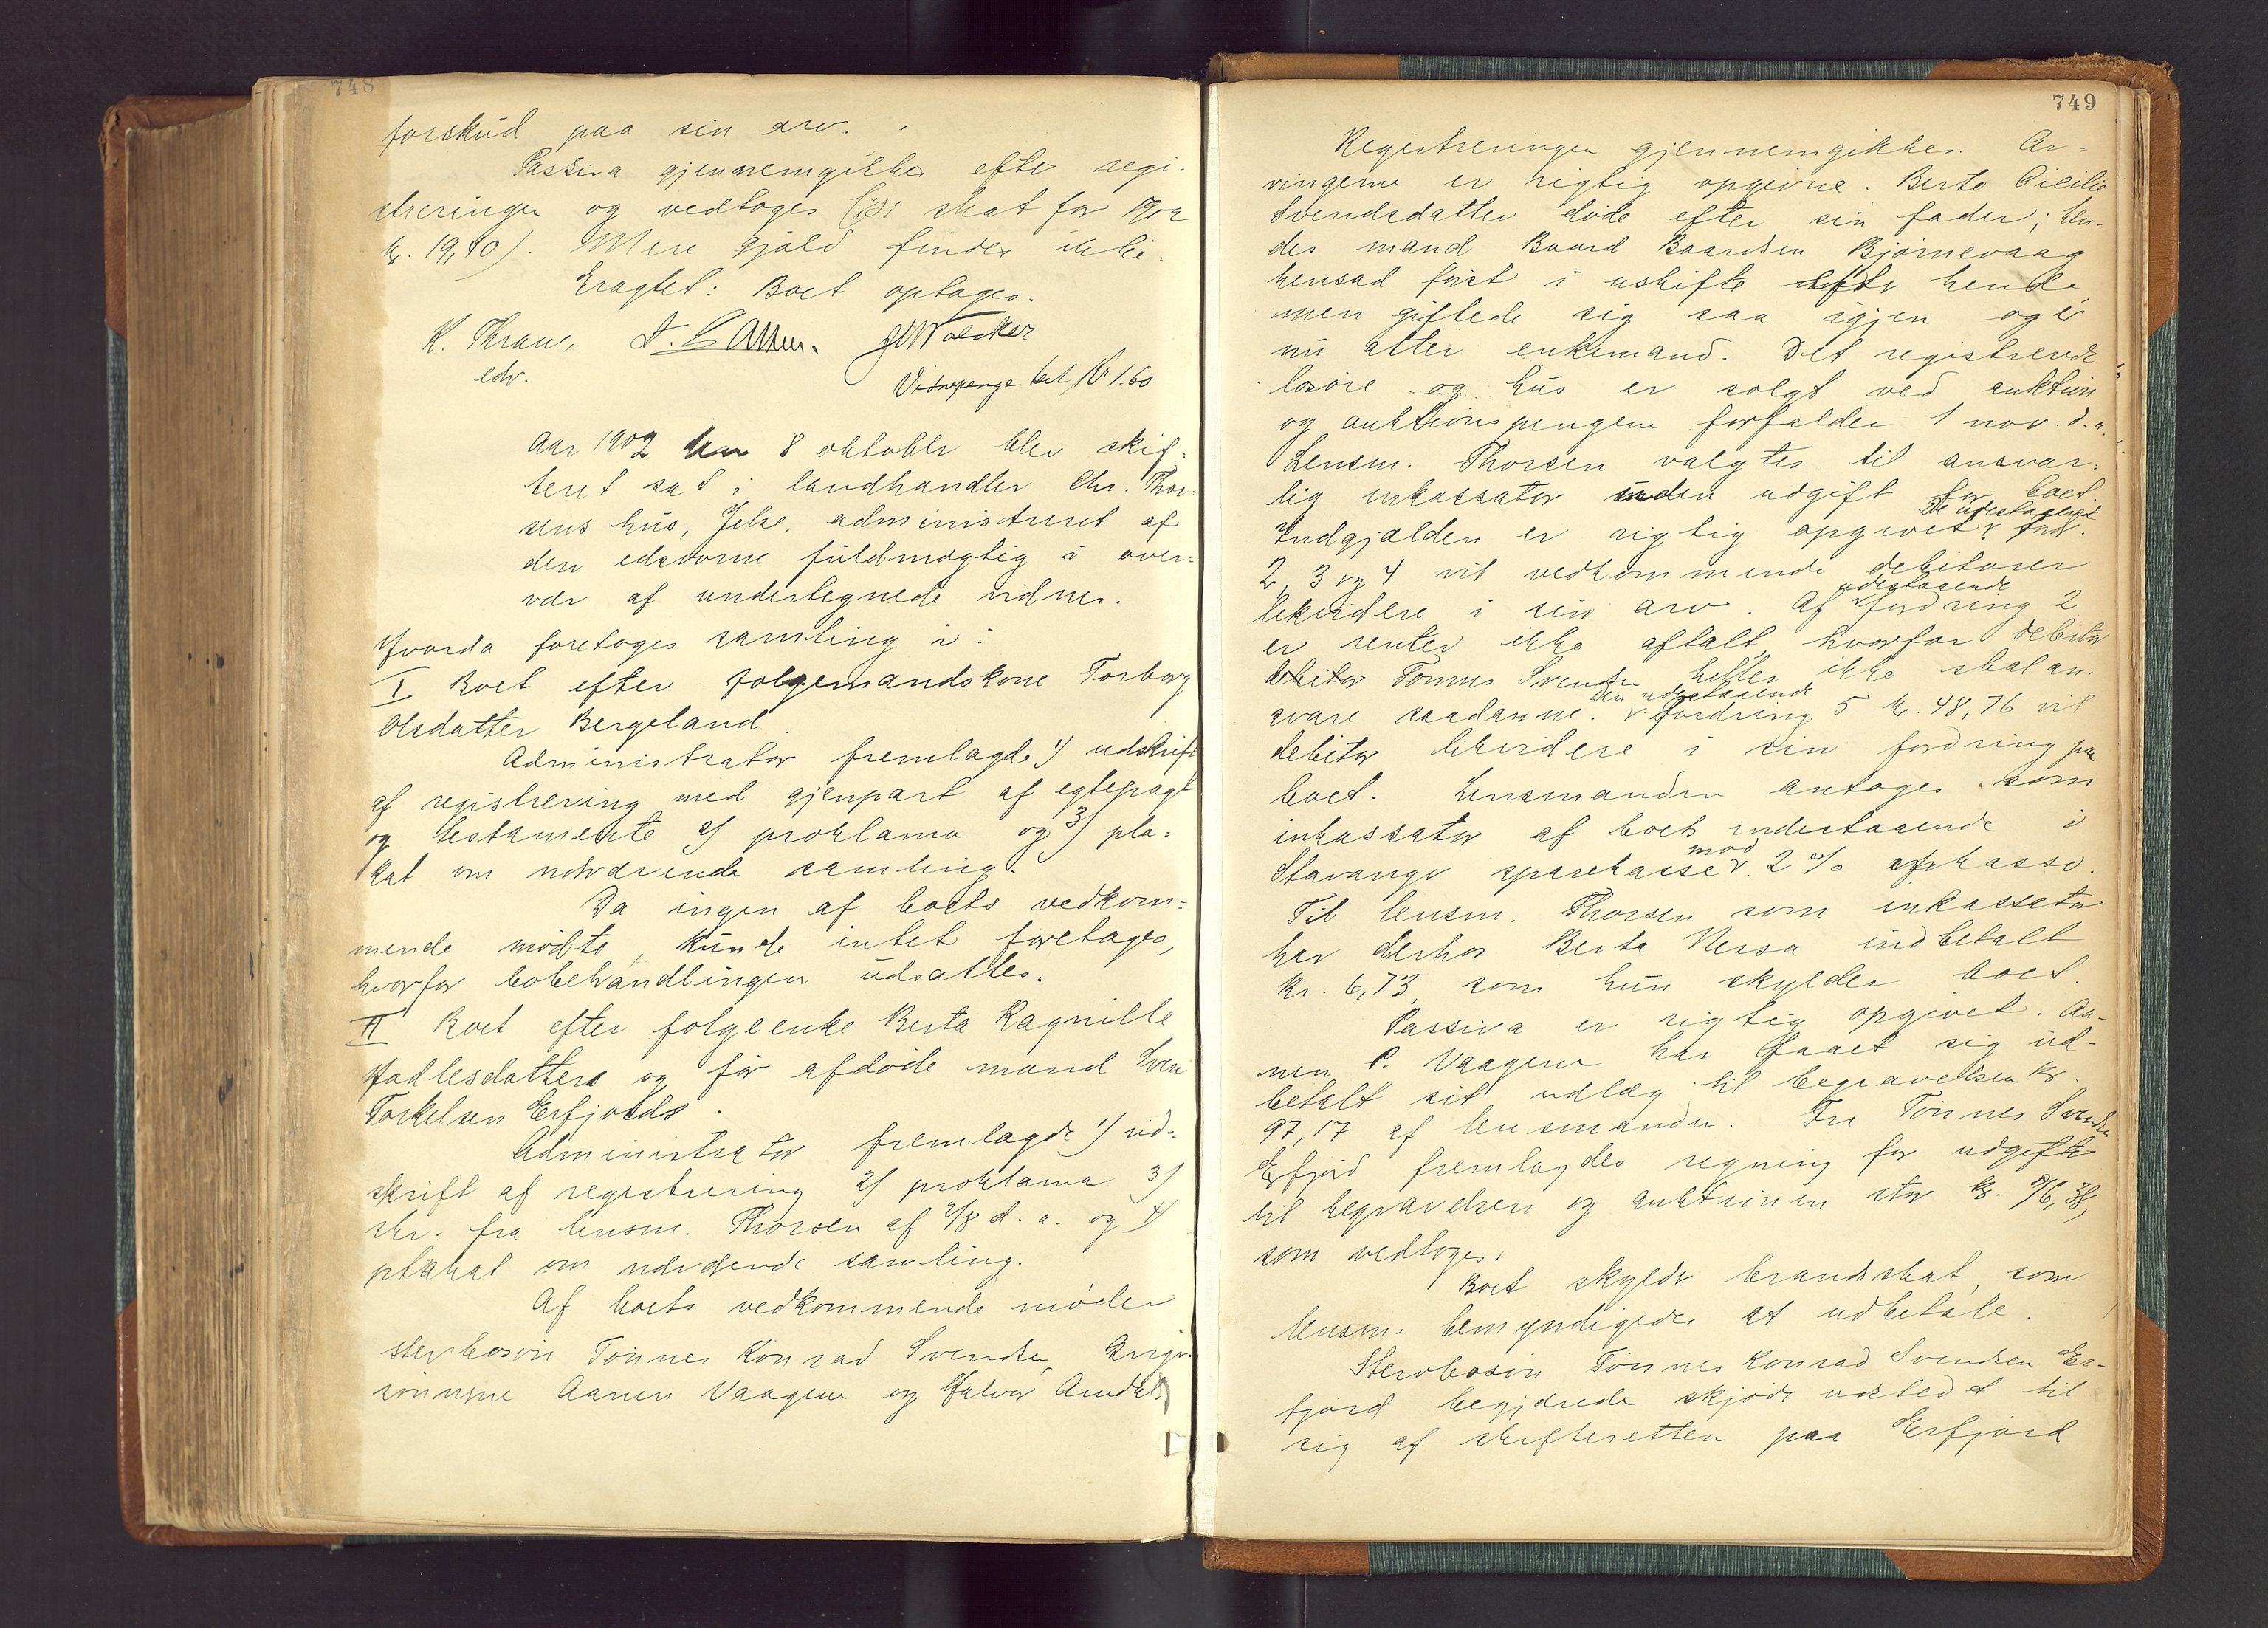 748
forskud paa sin arv.
Passiva gjennemgikkes efter regi-
streringen og vedtoges (ɔ: skat for 1902
kr. 19,40). Mere gjæld findes ikke.
Eragtet: Boet optages.
K. Thrane,
edv.
Vidnepenge bet Kr 1.60
Aar 1902 den 8 oktober blev skif-
teret sat i landhandler Chr. Thor-
sens hus, Jelse, administreret af
den edsvorne fuldmægtig i over-
vær af undertegnede vidner.
Hvorda foretoges samling i:
I Boet efter folgemandskone Torborg
Olsdatter Bergeland.
Administrator fremlagde 1) udskrift
af registrering med gjenpart af egtepagt
og testamente 2) proklama og 3) pla-
kat om nuværende samling.
Da ingen af boets vedkom-
mende mødte, kunde intet foretages,
hvorfor bobehandlingen udsattes.
II Boet efter folgeenke Berta Ragnille
Hadlesdatters og før afdøde mand Sven
Torkelsen Erfjords.
Administrator fremlagde 1) ud-
skrift af registrering 2) proklama 3)
skr. fra lensm. Thorsen af 2/8 d. a. og 4)
plakat om nuværende samling.
Af boets vedkommende møder
stervbosøn Tønnes Konrad Svendsen, sviger-
sønnerne Aanen Vaagene og Halvor Amdal.
749
Registreringen gjennemgikkes. Ar-
vingerne er rigtig opgivne. Berte Cicilie
Svendsdatter døde efter sin fader; hen-
des mand Baard Baardsen Bjørnevaag
hensad først i uskifte efter hende,
men giftede sig saa igjen og er
nu atter enkemand. Det registrerede
løsøre og hus er solgt ved auktion
og auktionspengene forfalder 1 nov. d. a.
Lensm. Thorsen valgtes til ansvar-
lig inkassator uden udgift for boet.
De udestaaende
Indgjælden er rigtig opgivet. ford.
2, 3 og 4 vil vedkommende debitorer
udestaaende
likvidere i sin arv. Af fordring 2
er renter ikke aftalt, hvorfor debitor
debitor Tønnes Svendsen heller ikke skal an-
Den udestaaende
svare saadanne. fordring 5 kr. 48,76 vil
debitor likvidere i sin fordring paa
boet. Lensmanden antages som
inkassator af boets indestaaende i
mod
Stavanger sparekasse 2 % af kasso.
Til lensm. Thorsen som inkassator
har derhos Berta Nessa indbetalt
kr. 6,73, som hun skylder boet.
Passiva er rigtig opgivet. Aa-
nen P. Vaagene har faaet sig ud-
betalt sit udlæg til begravelsen kr.
97,17 af lensmanden. Fra Tønnes Svendsen
Erfjord fremlagdes regning for udgifter
til begravelsen og auktionen stor kr.
som vedtoges.
Boet skylder brandskat, som
lensm. bemyndigedes at udbetale.
Stervbosøn Tønnes Konrad Svendsen Er-
fjord begjærede skjøde udstedet til
sig af skifteretten paa Erfjord